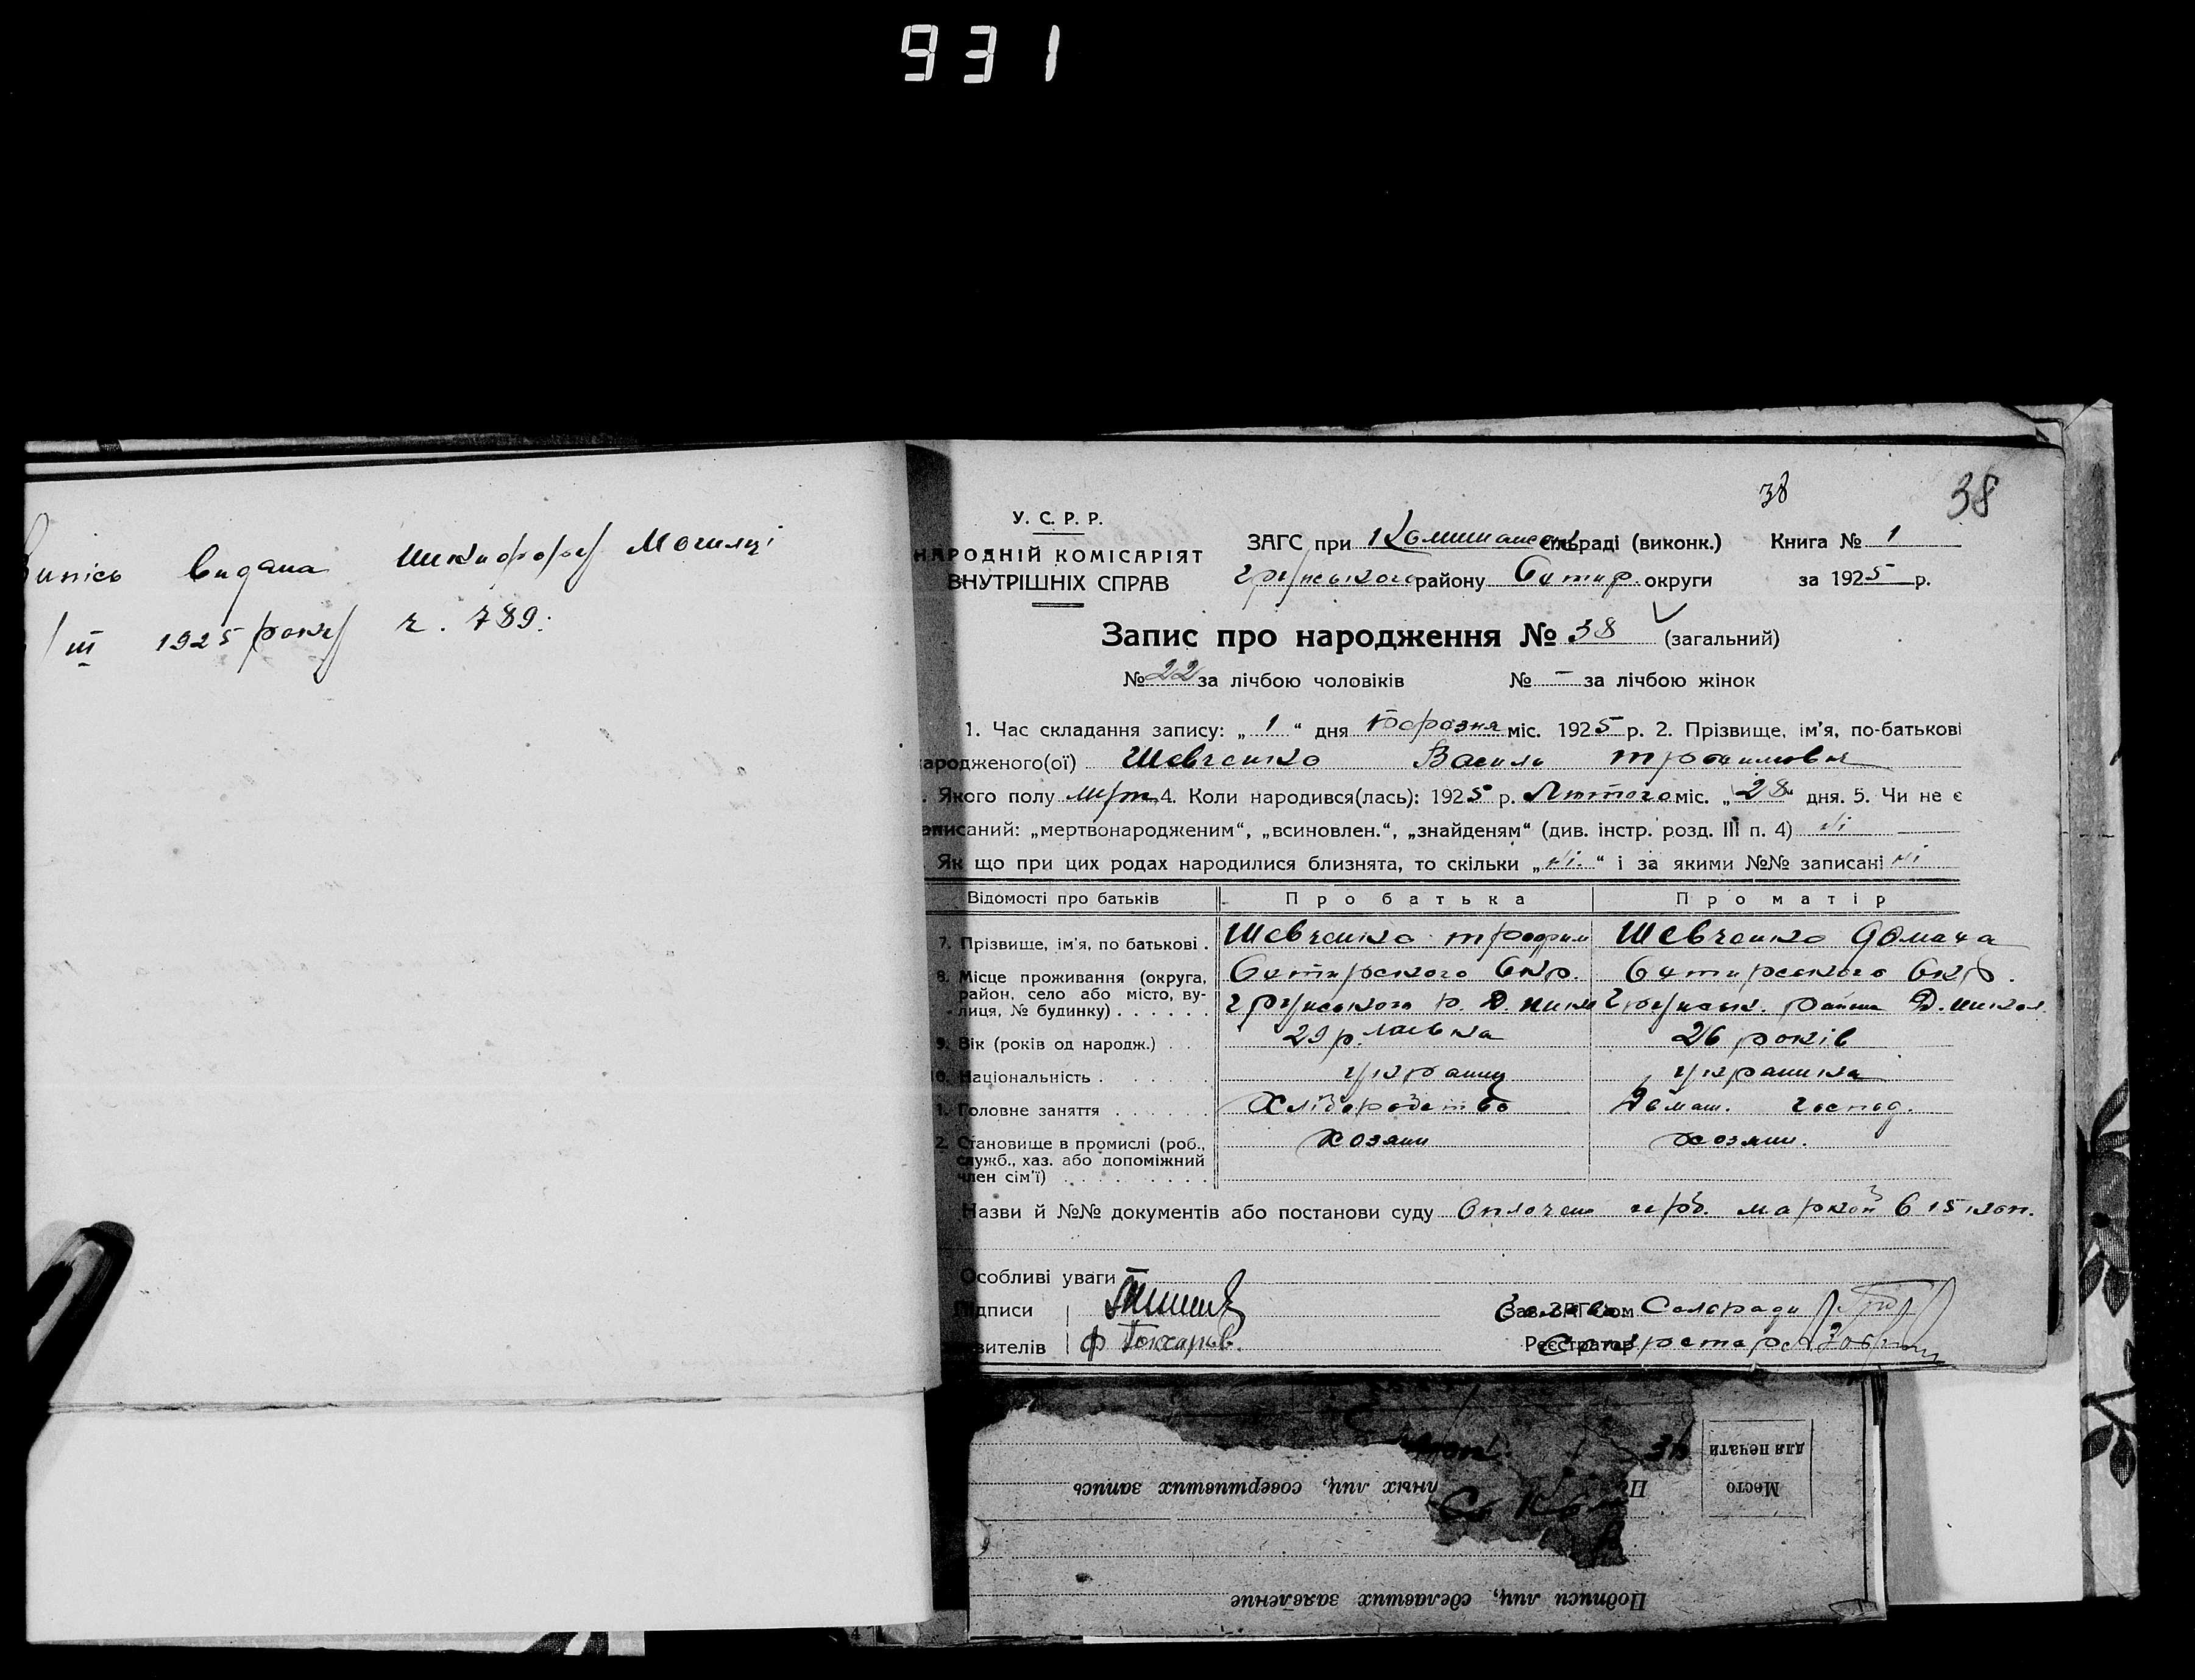 931
випісь видана Никифору Могилці
/ III 1925 року ч. 789.
38 38
У. С. Р. Р.
НАРОДНІЙ КОМІСАРІЯТ
ВНУТРІШНІХ СПРАВ
ЗАГС при сільраді (виконк.) Книга № 1
Грунського району округи за 1925 р.
Запис про народження № 38 (загальний)
№ 22 за лічбою чоловіків № – за лічбою жінок
1. Час складання запису: „ 1 “ дня Березня міс. 1925 р. 2. Прізвище, ім'я, по-батькові
народженого(ої) Шевченко Василь
Якого полу 4. Коли народився(лась): 1925 р. Лютого міс. „28“ дня. 5. Чи не є
записаний: „мертвонародженим“, „всиновлен.“, „знайденям“ (див. інстр. розд. III п. 4) ні
Як що при цих родах народилися близнята, то скільки „ні.“ і за якими №№ записані ні
Відомості про батьків Про батька Про матір
7. Прізвище, ім'я, по батькові . Шевченко Трофим Шевченко Домаха
8. Місце проживання (округа, район, село або місто, вулиця, № будинку) . . . . . .
Грунського р. Д. Грунськ. района Д.
9. Вік (років од народж.) . . 29 р. 26 років
10. Національність . українц українка
1. Головне заняття . . . . . Хліборобство Домаш. господ.
2. Становище в промислі (роб., служб., хаз. або допоміжний член сім'ї) . . . . . . . . . хозяин хозяин.
Назви й №№ документів або постанови суду Оплачено герб. маркой в 15 коп.
Особливі уваги –
Підписи Зав. ЗАГС'ом Голова Сельради
вителів Реєстратор Секретар
Место
для печати
ных лиц, совершивших запись
Подписи лиц, сделавших заявление